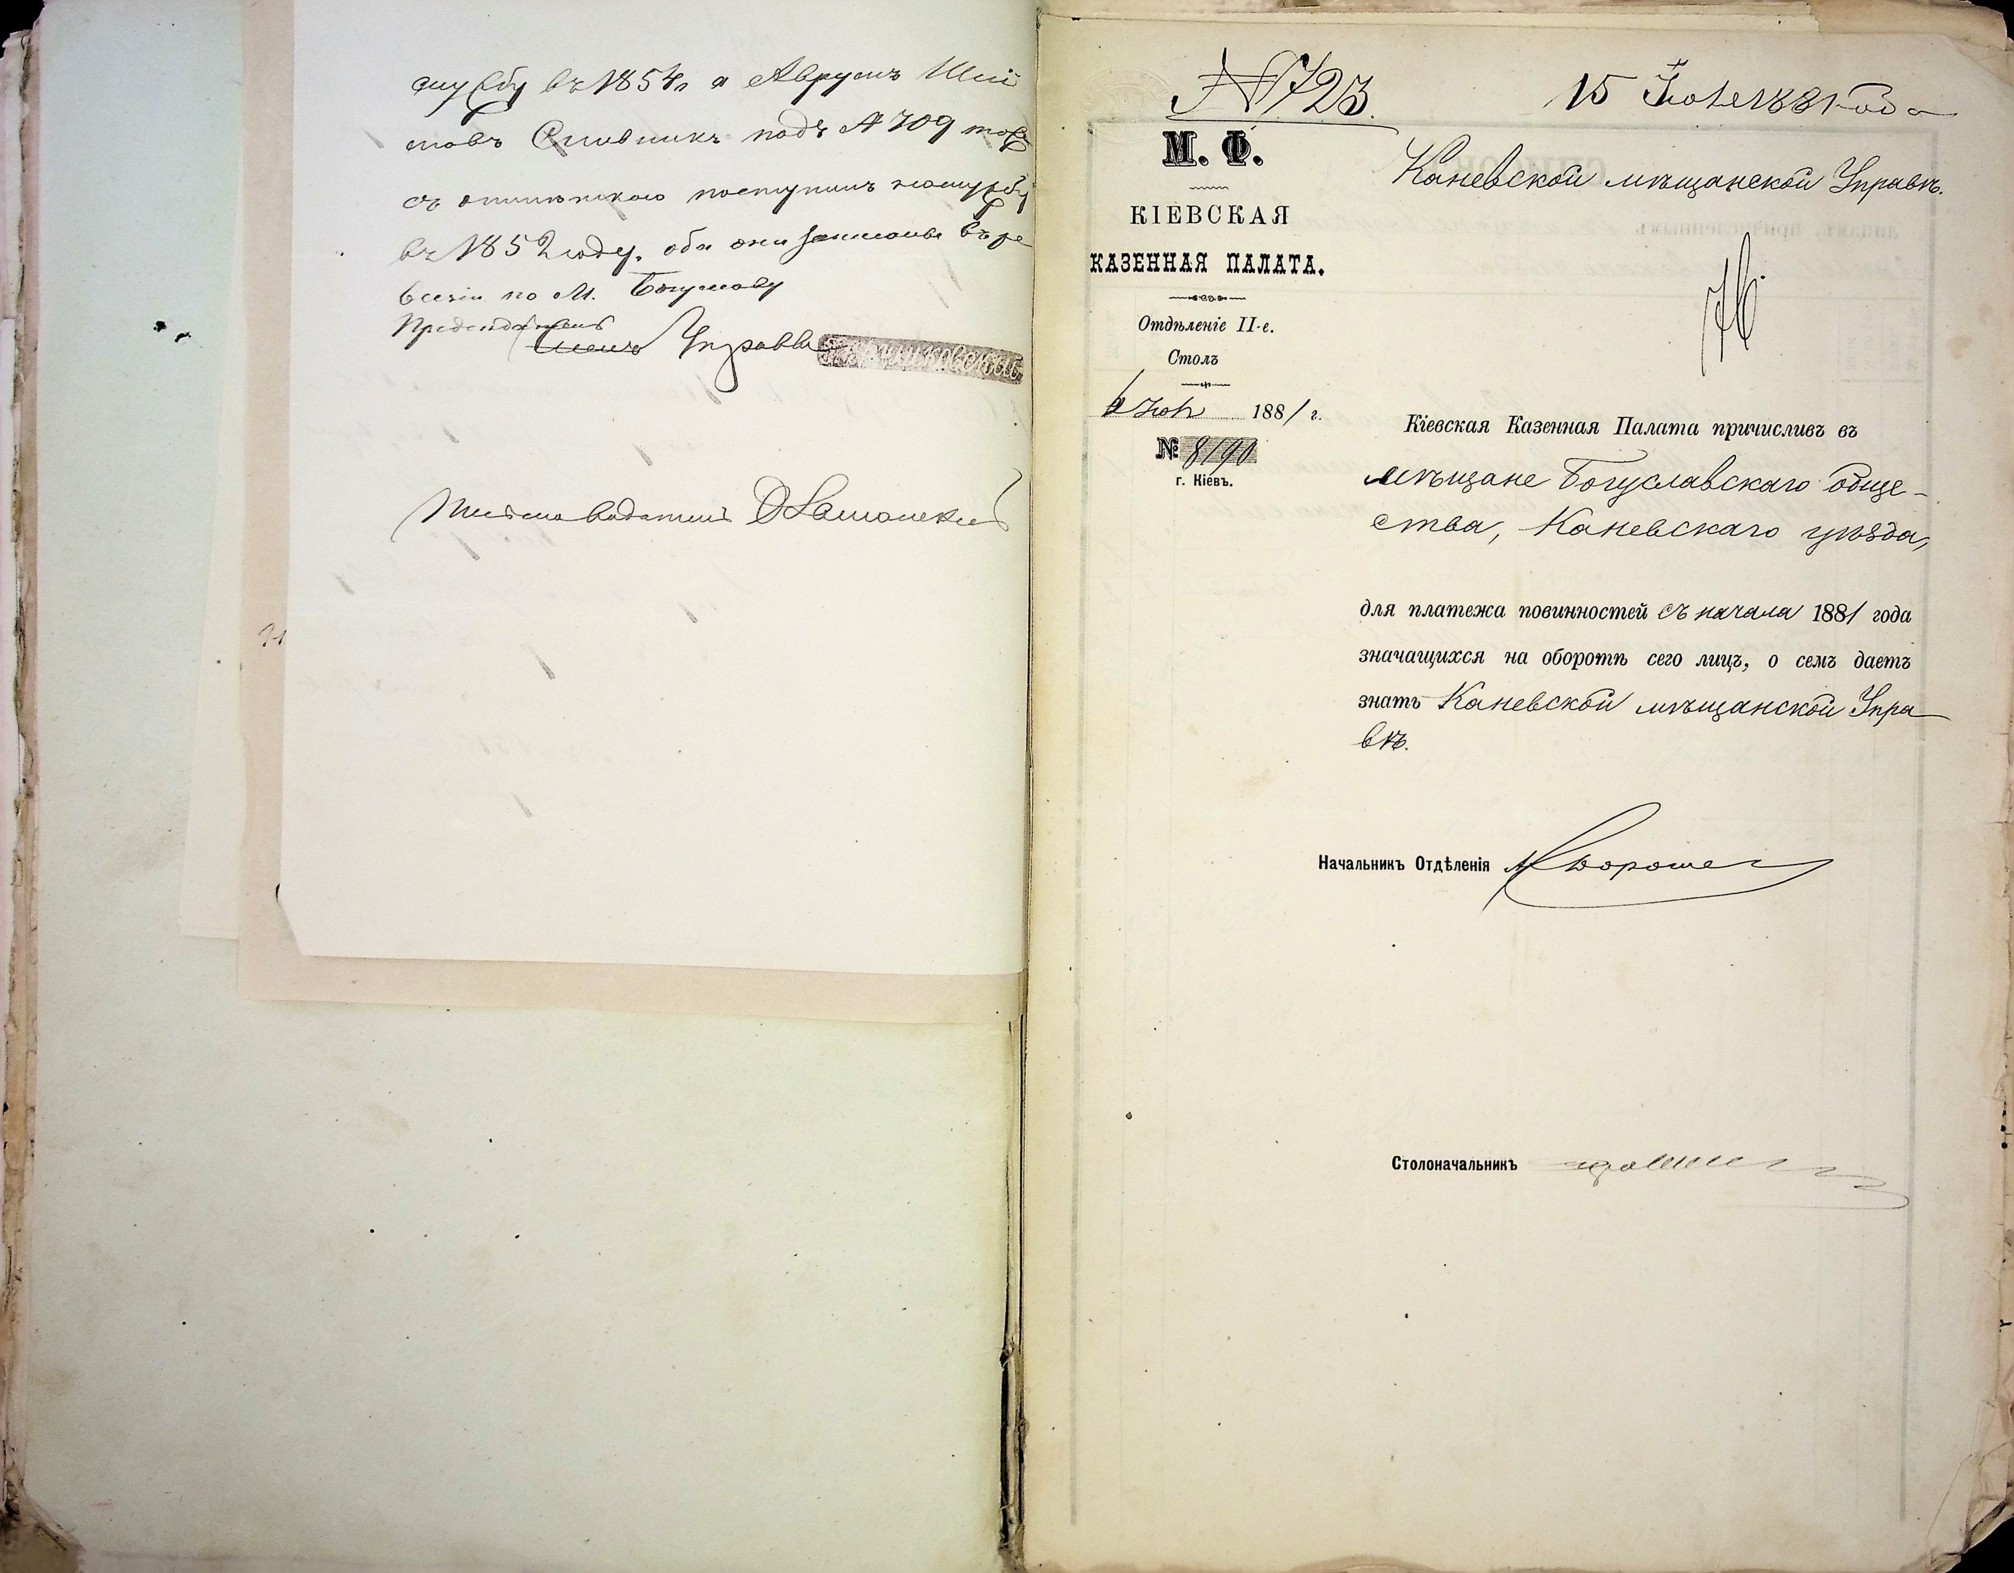 службу въ 1854 г а Аврумъ Шмі
ловъ подъ № 709 тоже
съ отмѣткою поступилъ на службу
въ 1852 году, оба они записаны въ ре
визіи по М. Богуславу
Председатель
Членъ Управы
Письмоводитель
№ 723. 15 Іюня 1881 года
М. Ф.
КІЕВСКАЯ
КАЗЕННАЯ ПАЛАТА.
Отдѣленіе II-е.
Столъ
Іюня 1881 г.
№ 8190
г. Кіевъ.
Каневской мѣщанской Управѣ.
Кіевская Казенная Палата причисливъ въ
мѣщане Богуславскаго обще-
ства, Каневскаго уѣзда,
для платежа повинностей съ начала 1881 года
значащихся на оборотѣ сего лицъ, о семъ даетъ
знать Каневской мѣщанской Упра
вѣ.
Начальникъ Отдѣленія
Столоначальникъ